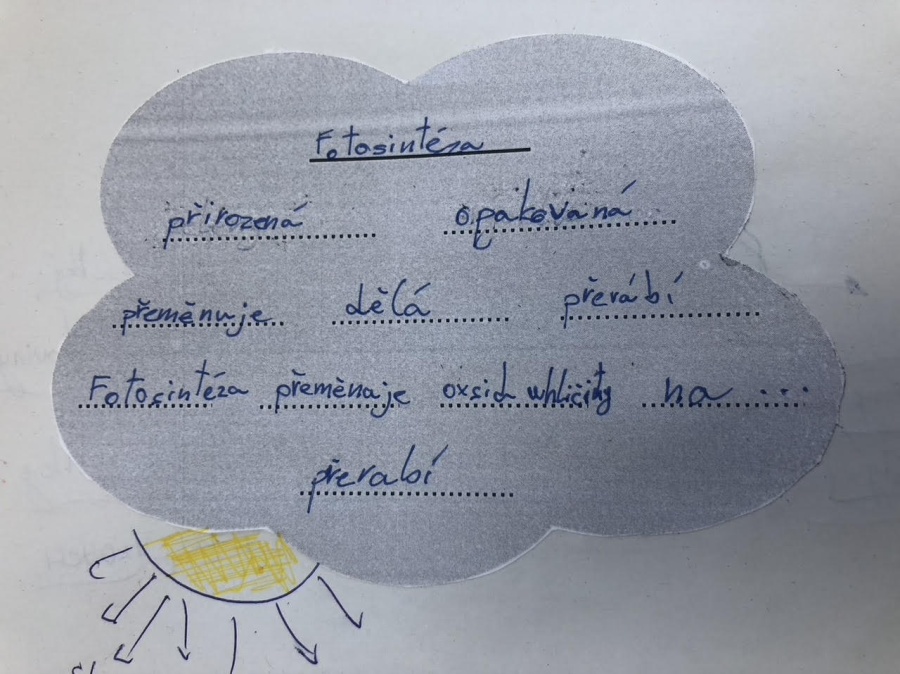 Fotosintéza
přirozená opakovaná
přeměnuje dělá přerábí
Fotosintéza přeměnuje oxsid uhličitý na ...
přerabí